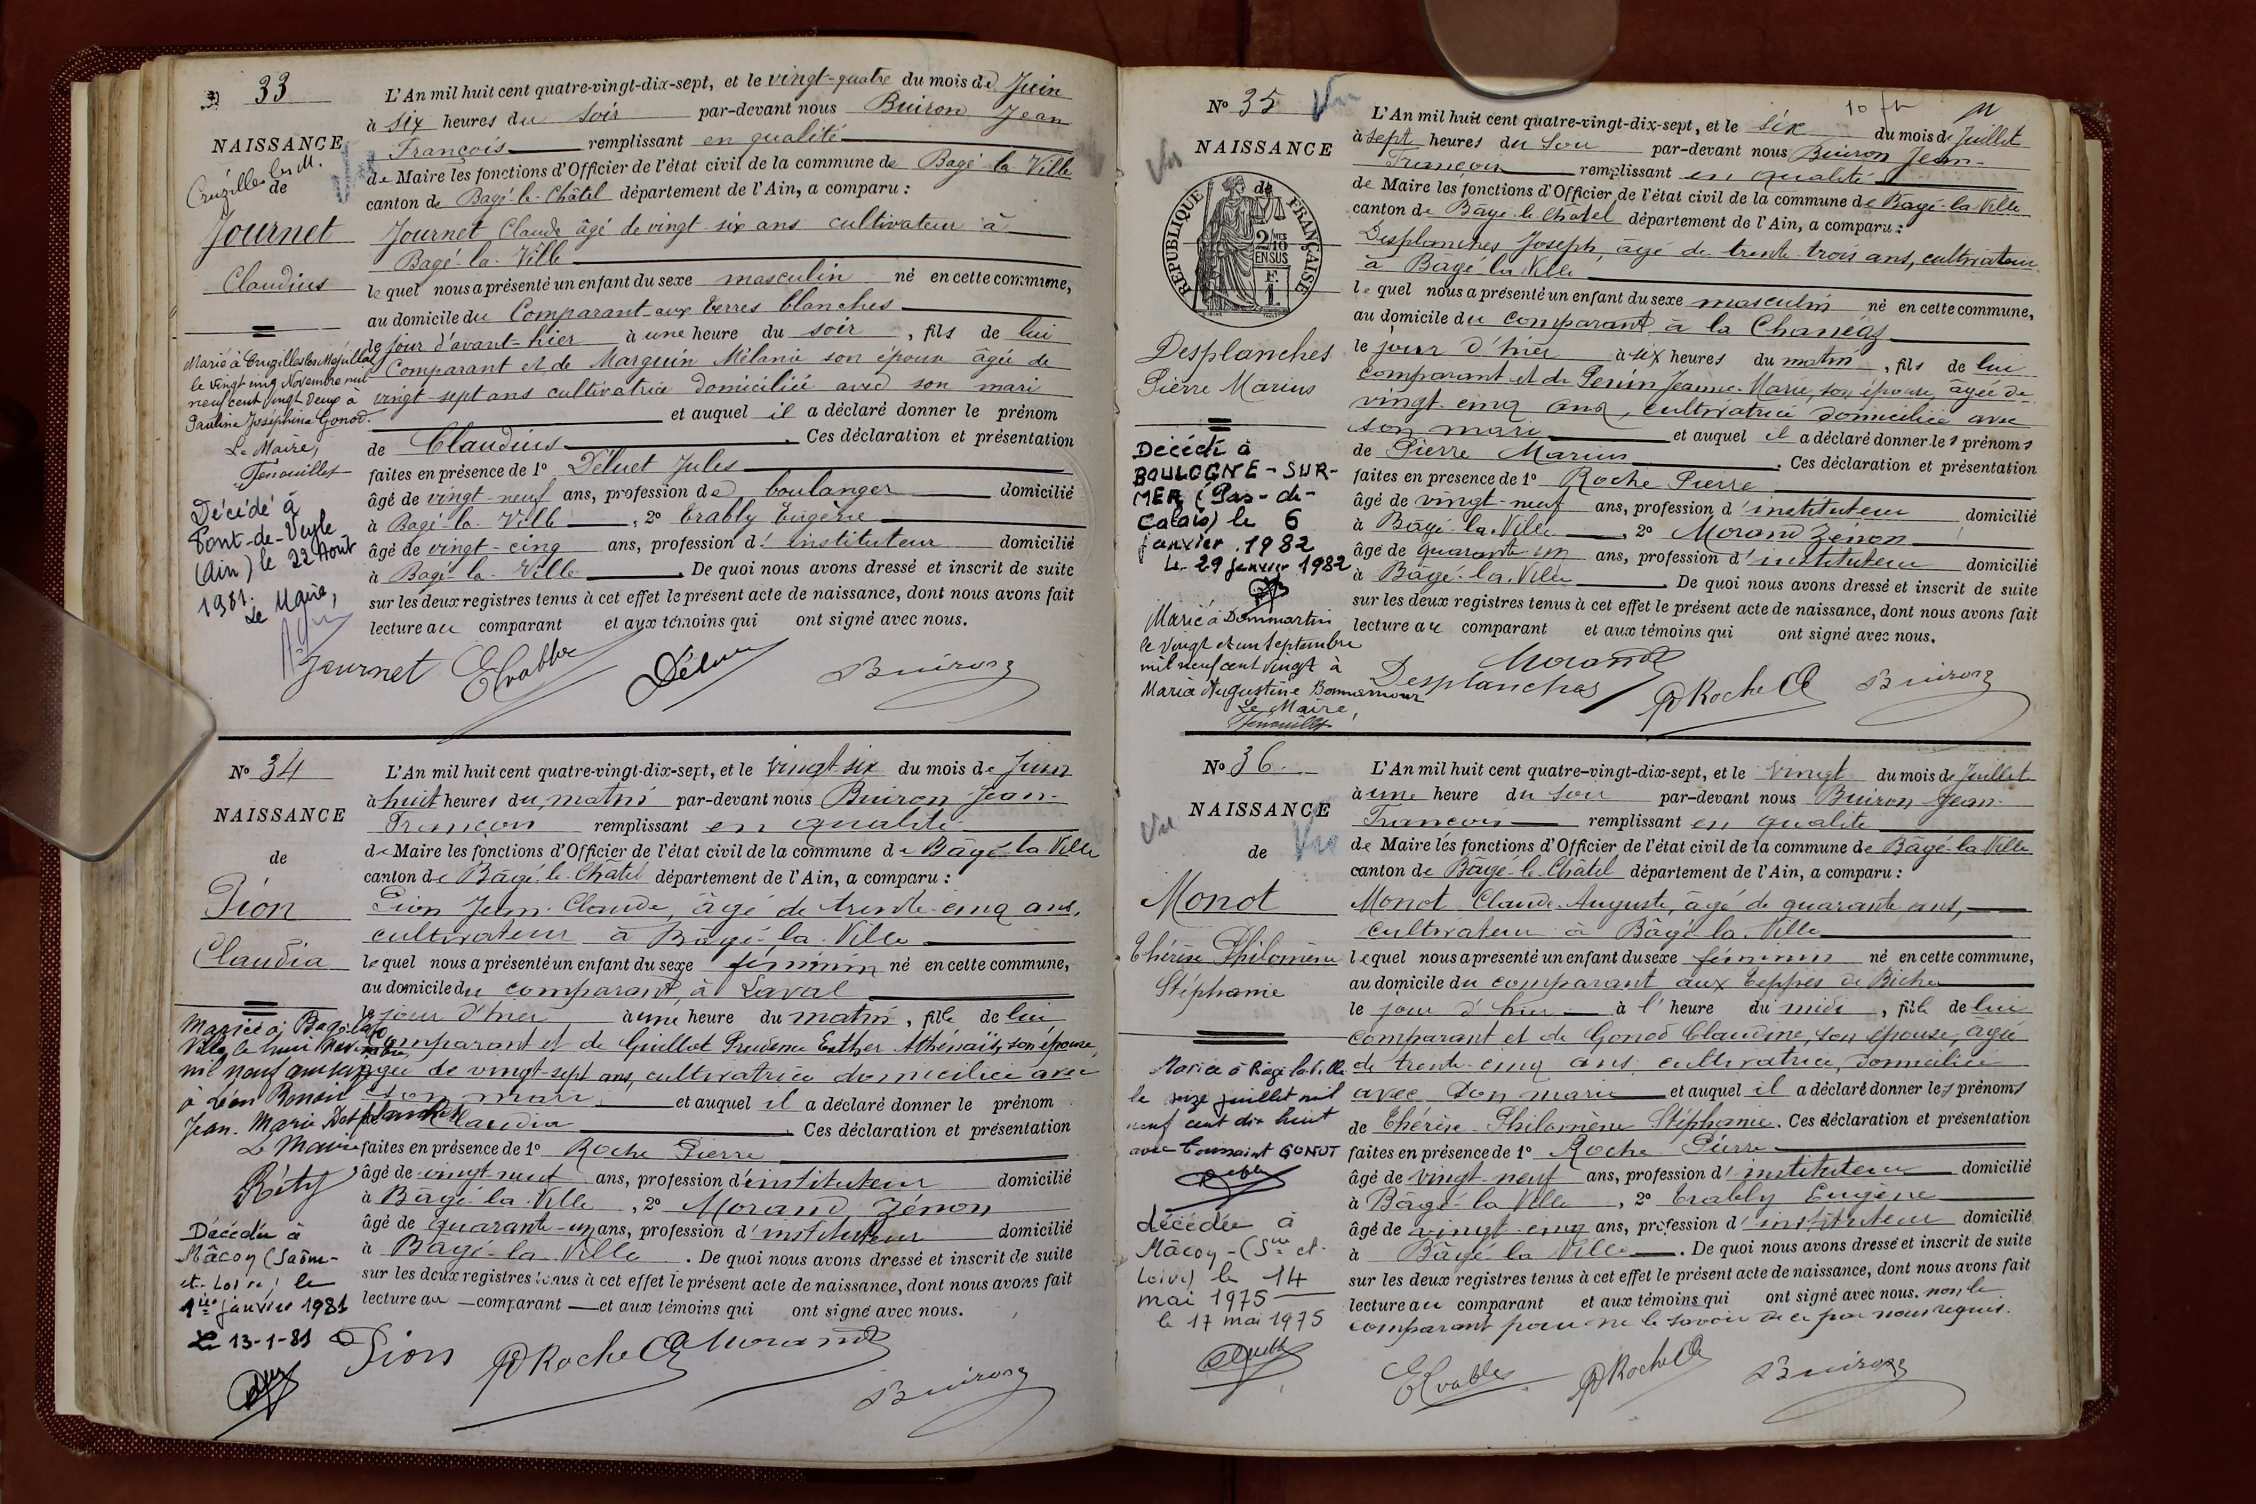 33
NAISSANCE
Cruzilles les M.
de
Journet
Claudius
Marié à Cruzilles les Mépillat
le vingt cinq Novembre mil
neuf cent vingt deux à
Pauline Joséphine Gonod.
Le Maire,
Fenouillet
Décédé à
Pont-de-Veyle
(Ain) le 22 Août
1981.
Le Maire,
L'An mil huit cent quatre-vingt-dix-sept, et le vingt-quatre du mois de Juin
à six heures du soir par-devant nous Buiron Jean
François remplissant en qualité
de Maire les fonctions d'Officier de l'état civil de la commune de Bagé-la-Ville
canton de Bagé-le-Châtel département de l'Ain, a comparu :
Journet Claude âgé de vingt-six ans cultivateur à
Bagé-la-Ville
lequel nous a présenté un enfant du sexe masculin né en cette commune,
au domicile du Comparant aux terres blanches
le jour d'avant-hier à une heure du soir, fils de lui
Comparant et de Marguin Mélanie son épouse âgée de
vingt-sept ans cultivatrice domiciliée avec son mari
et auquel il a déclaré donner le prénom
de Claudius. Ces déclaration et présentation
faites en présence de 1º Déluet Jules
âgé de vingt-neuf ans, profession de boulanger domicilié
à Bagé-la-Ville, 2º Erably Eugène
âgé de vingt-cinq ans, profession d'instituteur domicilié
à Bagé-la-Ville. De quoi nous avons dressé et inscrit de suite
sur les deux registres tenus à cet effet le présent acte de naissance, dont nous avons fait
lecture au comparant et aux témoins qui ont signé avec nous.
Journet Buiron
Nº 34
NAISSANCE
de
Pion
Claudia
Mariée à Bagé-la-
Ville, le huit Novembre
mil neuf
à Léon Benoit
Jean-Marie Desplanches
Le Maire
Réty
Décédée à
Mâcon (Saône-
et-Loire) le
1ier janvier 1981
Le 13-1-81
L'An mil huit cent quatre-vingt-dix-sept, et le vingt-six du mois de Juin
à huit heures du matin par-devant nous Buiron Jean-
François remplissant en qualité
de Maire les fonctions d'Officier de l'état civil de la commune de Bâgé-la-Ville
canton de Bâgé-le-Châtel département de l'Ain, a comparu :
Pion Jean-Claude, âgé de trente-cinq ans,
cultivateur à Bâgé-la-Ville
lequel nous a présenté un enfant du sexe féminin né en cette commune,
au domicile du comparant, à Laval
le jour d'hier à une heure du matin, fille de lui
comparant et de Guillot Prudence Esther Athénaïs, son épouse,
âgée de vingt-sept ans, cultivatrice domiciliée avec
son mari et auquel il a déclaré donner le prénom
de Claudia. Ces déclaration et présentation
faites en présence de 1º Roche Pierre
âgé de vingt-neuf ans, profession d'instituteur domicilié
à Bâgé-la-Ville, 2º Morand Zénon
âgé de quarante-un ans, profession d'instituteur domicilié
à Bâgé-la-Ville. De quoi nous avons dressé et inscrit de suite
sur les deux registres tenus à cet effet le présent acte de naissance, dont nous avons fait
lecture au comparant et aux témoins qui ont signé avec nous.
Pion Roche Morand
Buiron
Nº 35 Vu
Vu
NAISSANCE
RÉPUBLIQUE FRANÇAISE
2/10 MES EN SUS
de
Desplanches
Pierre Marius
Décédé à
BOULOGNE-SUR-
MER (Pas-de-
Calais) le 6
janvier 1982
Le 29 janvier 1982
Marié à Dommartin
le vingt et un septembre
mil neuf cent vingt à
Maria Augustine Bonnamour
Le Maire,
Fenouillet
L'An mil huit cent quatre-vingt-dix-sept, et le six du mois de Juillet
à sept heures du soir par-devant nous Buiron Jean-
François remplissant en qualité
de Maire les fonctions d'Officier de l'état civil de la commune de Bâgé-la-Ville
canton de Bâgé-le-Châtel département de l'Ain, a comparu :
Desplanches Joseph, âgé de trente-trois ans, cultivateur
à Bâgé-la-Ville
lequel nous a présenté un enfant du sexe masculin né en cette commune,
au domicile du comparant, à la Chanéaz
le jour d'hier à six heures du matin, fils de lui
comparant et de Penin Jeanne-Marie, son épouse, âgée de
vingt-cinq ans, cultivatrice domiciliée avec
son mari et auquel il a déclaré donner les prénoms
de Pierre Marius. Ces déclaration et présentation
faites en présence de 1º Roche Pierre
âgé de vingt-neuf ans, profession d'instituteur domicilié
à Bâgé-la-Ville, 2º Morand Zénon
âgé de quarante-un ans, profession d'instituteur domicilié
à Bâgé-la-Ville. De quoi nous avons dressé et inscrit de suite
sur les deux registres tenus à cet effet le présent acte de naissance, dont nous avons fait
lecture au comparant et aux témoins qui ont signé avec nous.
Desplanches Morand Roche Buiron
Nº 36.
NAISSANCE
Vu
de
Monot
Thérèse Philomène
Stéphanie
Mariée à Bâgé la Ville
le seize juillet mil
neuf cent dix huit
avec Toussaint GONOT
décédée à
Mâcon-(Sne et-
Loire) le 14
mai 1975
le 17 mai 1975
L'An mil huit cent quatre-vingt-dix-sept, et le vingt du mois de Juillet
à une heure du soir par-devant nous Buiron Jean-
François remplissant en qualité
de Maire les fonctions d'Officier de l'état civil de la commune de Bâgé-la-Ville
canton de Bâgé-le-Châtel département de l'Ain, a comparu :
Monot Claude-Auguste, âgé de quarante ans,
cultivateur à Bâgé-la-Ville
lequel nous a présenté un enfant du sexe féminin né en cette commune,
au domicile du comparant aux Teppes de Biche
le jour d'hier à l'heure du midi, fille de lui
comparant et de Gonod Claudine, son épouse, âgée
de trente-cinq ans, cultivatrice, domiciliée
avec son mari et auquel il a déclaré donner les prénoms
de Thérèse Philomène Stéphanie. Ces déclaration et présentation
faites en présence de 1º Roche Pierre
âgé de vingt-neuf ans, profession d'instituteur domicilié
à Bâgé-la-Ville, 2º Erably Eugène
âgé de vingt-cinq ans, profession d'instituteur domicilié
à Bâgé-la-Ville. De quoi nous avons dressé et inscrit de suite
sur les deux registres tenus à cet effet le présent acte de naissance, dont nous avons fait
lecture au comparant et aux témoins qui ont signé avec nous. non le
comparant pour ne le savoir de ce par nous requis.
Roche Buiron